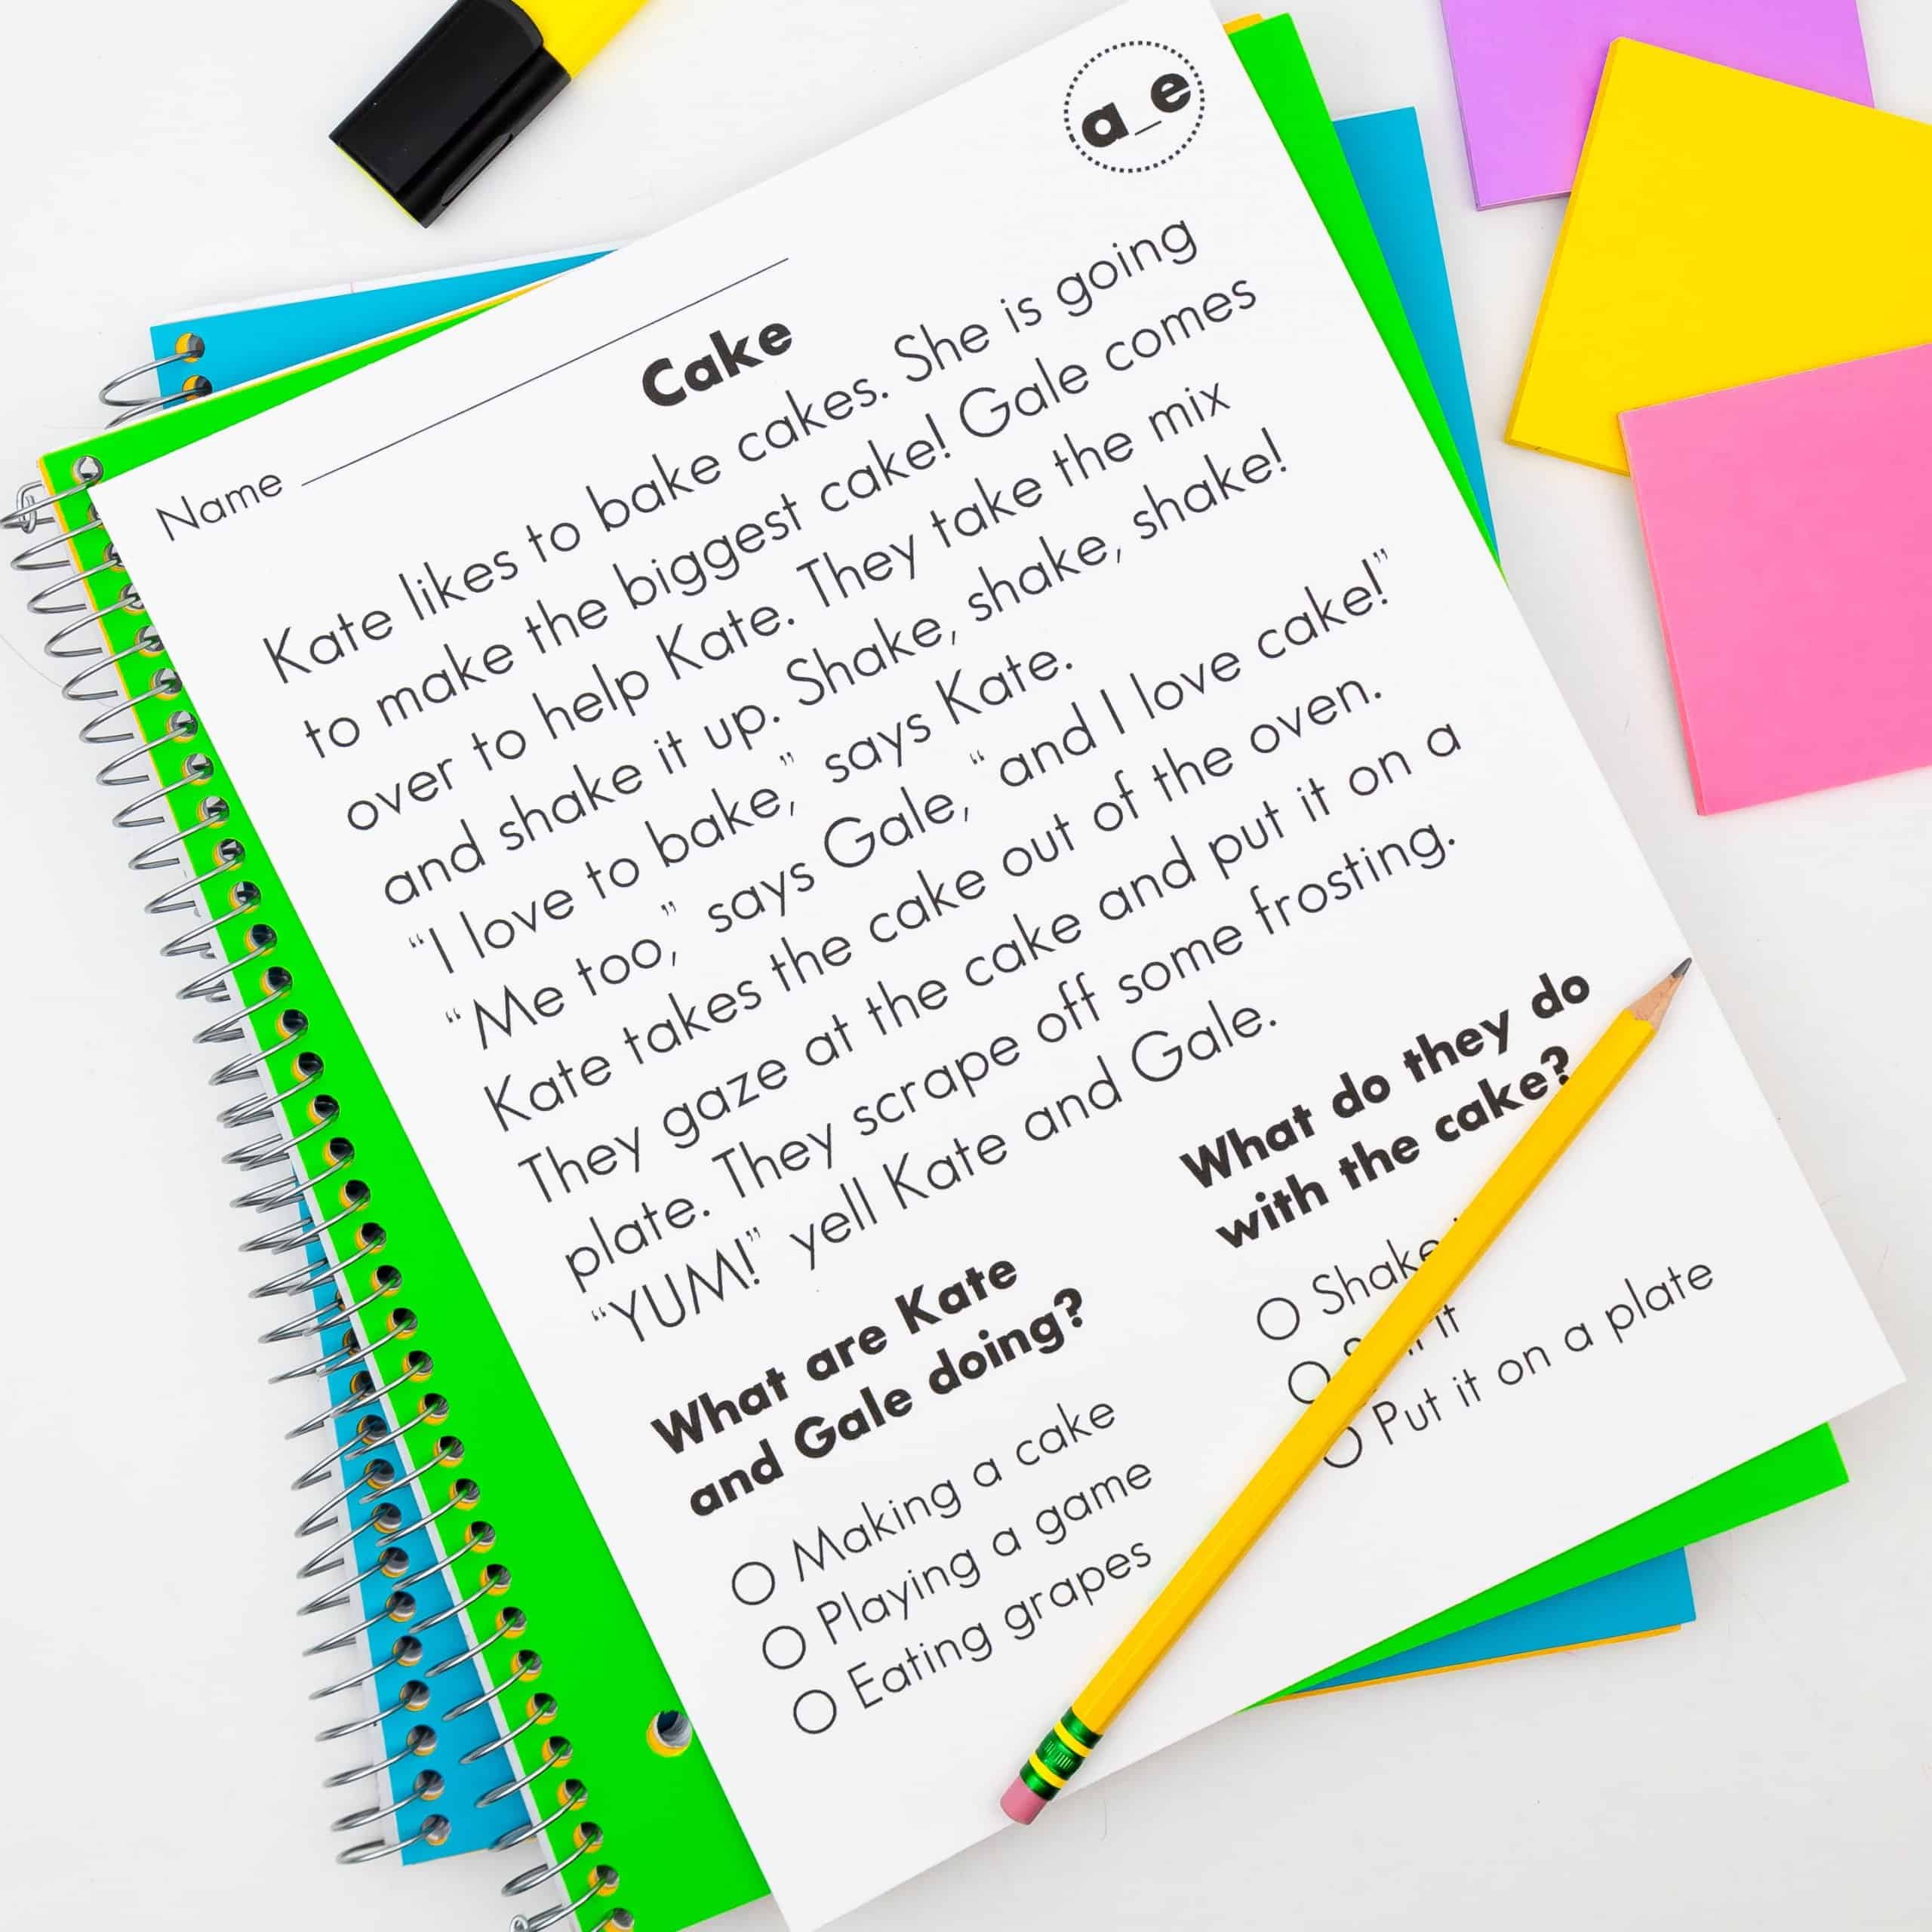 a_e
Name
Cake
Kate likes to bake cakes. She is going
to make the biggest cake! Gale comes
over to help Kate. They take the mix
and shake it up. Shake, shake, shake!
“I love to bake,” says Kate.
“Me too,” says Gale, “and I love cake!”
Kate takes the cake out of the oven.
They gaze at the cake and put it on a
plate. They scrape off some frosting.
“YUM!” yell Kate and Gale.
What are Kate
and Gale doing?
Making a cake
Playing a game
Eating grapes
What do they do
with the cake?
Shake
it
Put it on a plate